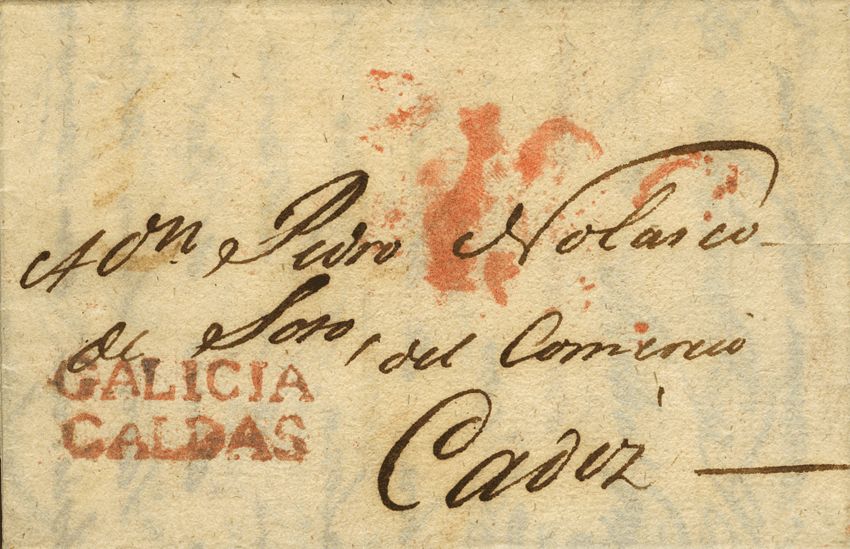 A Dn Pedro Nolasco
de Soto, del Comercio
GALICIA
CALDAS
Cadiz